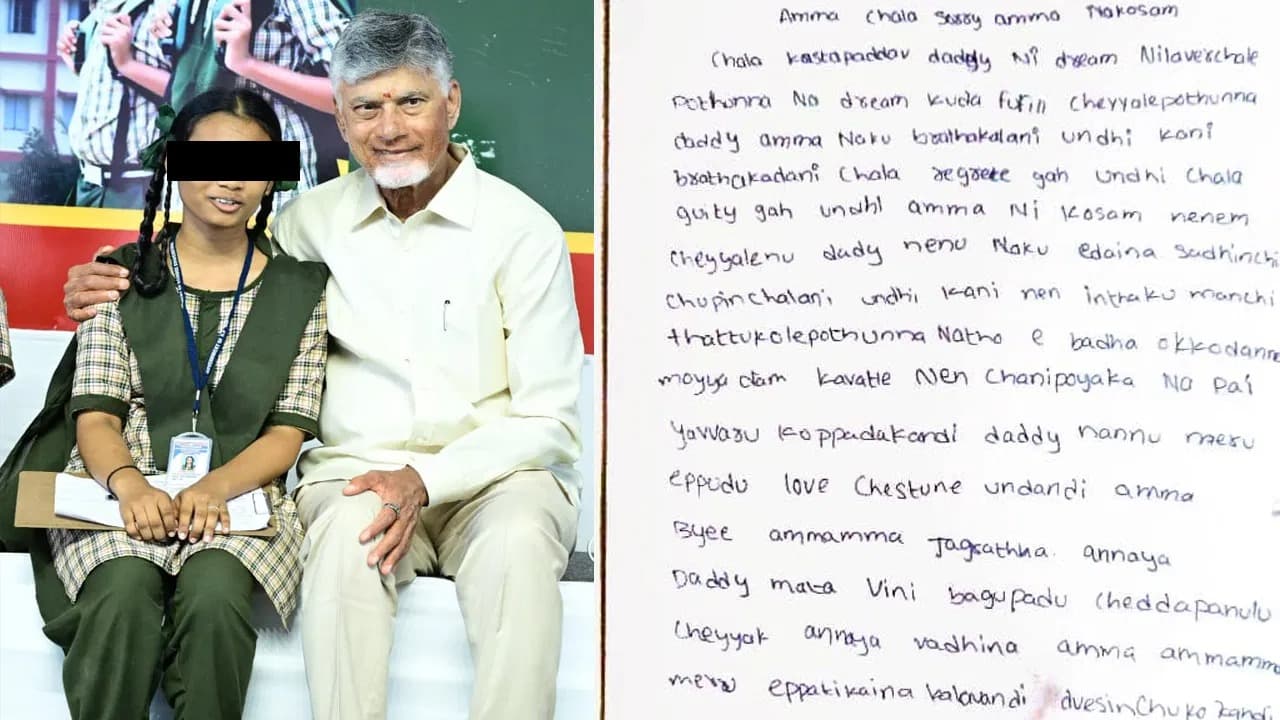 Amma Chala sorry amma Nakosam
Chala kastapaddav daddy Ni dream Nilaverchale
pothunna Na dream kuda fufill cheyyalepothunna
daddy amma Naku brathakalani undhi kani
brathakadani chala regrete gah undhi chala
guity gah undhi amma Ni kosam nenem
cheyyalenu dady nenu Naku edaina sadhinchi
chupinchalani undhi kani nen inthaku manchi
thattukolepothunna Natho e badha okkodanne
moyya dam kavatle Nen Chanipoyaka Na pai
yavvaru koppadakandi daddy nannu meru
eppudu love chestune undandi amma
Byee ammamma Jagrathha annaya
Daddy mata vini bagupadu cheddapanulu
cheyyak annaya vadhina amma ammamma
meru eppatikaina kalavandi dvesinchuko kandi